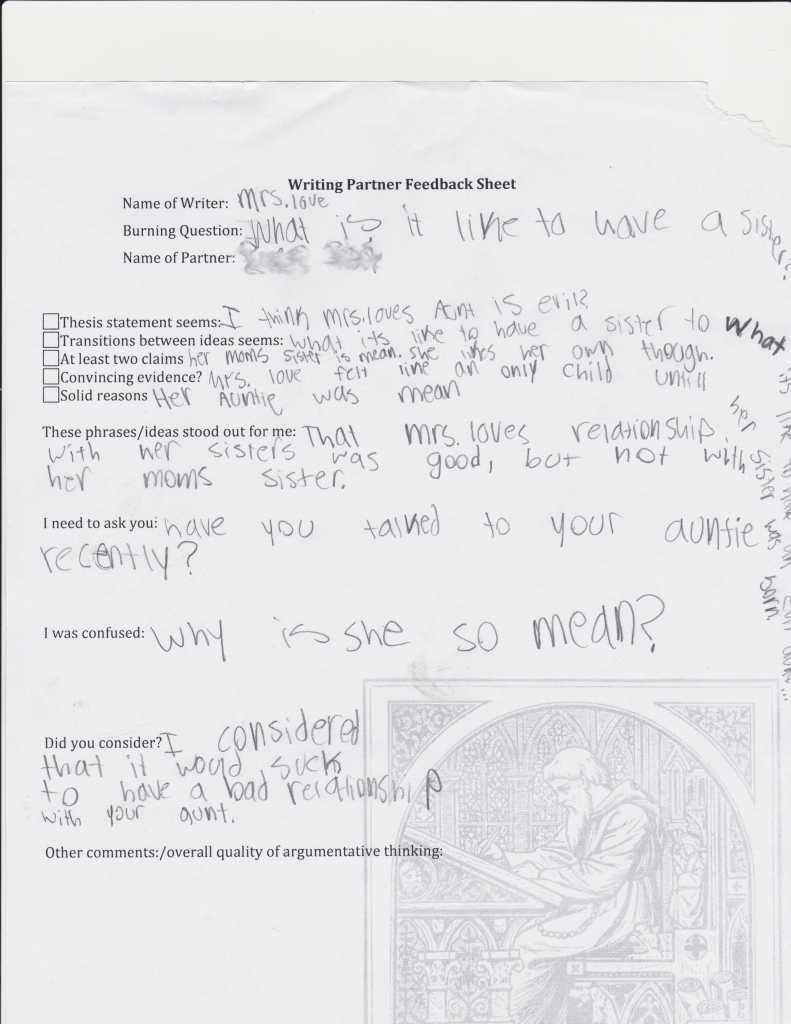 Writing Partner Feedback Sheet
Name of Writer: Mrs. love
Burning Question: What is it like to have a sister?
Name of Partner:
Thesis statement seems: I think mrs.loves Aunt is evil?
Transitions between ideas seems: what its like to have a sister to what
its like to have an evil aunt...
At least two claims her moms sister is mean. she likes her own though.
Convincing evidence? Mrs. love felt like an only child untill
her sister was born.
Solid reasons Her Auntie was mean
These phrases/ideas stood out for me: That mrs.loves relationship
with her sisters was good, but not with
her moms sister.
I need to ask you: have you talked to your auntie
recently?
I was confused: why is she so mean?
Did you consider? I considered
that it would suck
to have a bad relationship
with your aunt.
Other comments:/overall quality of argumentative thinking: